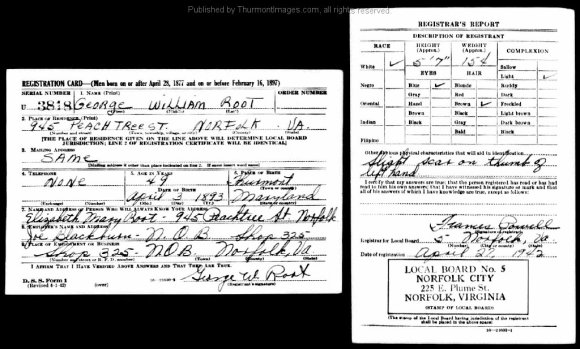 Published by ThurmontImages.com, all rights reserved.
REGISTRATION CARD—(Men born on or after April 28, 1877 and on or before February 16, 1897)
SERIAL NUMBER 1. NAME (Print) ORDER NUMBER
U 3818 George William Root
(First) (Middle) (Last)
2. PLACE OF RESIDENCE (Print)
945 PEACHTREE ST. NORFOLK VA.
[THE PLACE OF RESIDENCE GIVEN ON THE LINE ABOVE WILL DETERMINE LOCAL BOARD
JURISDICTION; LINE 2 OF REGISTRATION CERTIFICATE WILL BE IDENTICAL]
3. MAILING ADDRESS
SAME
[Mailing address if other than place indicated on line 2. If same insert word same]
4. TELEPHONE 5. AGE IN YEARS 6. PLACE OF BIRTH
NONE 49 Thurmont
DATE OF BIRTH
April 3 1893 Maryland
(Exchange) (Number) (Mo.) (Day) (Yr.) (State or country)
7. NAME AND ADDRESS OF PERSON WHO WILL ALWAYS KNOW YOUR ADDRESS
Elizabeth Mary Root - 945 Peachtree St Norfolk
8. EMPLOYER'S NAME AND ADDRESS
Joe Blackburn - N.O.B. Shop 325
9. PLACE OF EMPLOYMENT OR BUSINESS
Shop 325 - NOB Norfolk, Va
(Number and street or R. F. D. number) (Town) (County) (State)
I AFFIRM THAT I HAVE VERIFIED ABOVE ANSWERS AND THAT THEY ARE TRUE.
George W. Root
D. S. S. Form 1
(Revised 4-1-42) (over) (Registrant's signature)
REGISTRAR'S REPORT
DESCRIPTION OF REGISTRANT
RACE HEIGHT (Approx.) WEIGHT (Approx.) COMPLEXION
White ✓ 5' 7" 154 Sallow
EYES HAIR Light ✓
Negro Blue ✓ Blonde Ruddy
Gray Red Dark
Oriental Hazel Brown ✓ Freckled
Brown Black Light brown
Indian Black Gray Dark brown
Bald Black
Filipino
Other obvious physical characteristics that will aid in identification
Slight scar on thumb of
left hand
I certify that my answers are true; that the person registered has read or has had
read to him his own answers; that I have witnessed his signature or mark and that
all of his answers of which I have knowledge are true, except as follows:
Frances
(Signature of registrar)
Registrar for Local Board 5 Norfolk, Va
(Number) (City or county) (State)
Date of registration April 27, 1942
LOCAL BOARD No. 5
NORFOLK CITY
225 E. Plume St.
NORFOLK, VIRGINIA
(STAMP OF LOCAL BOARD)
(The stamp of the Local Board having jurisdiction of the registrant
shall be placed in the above space)